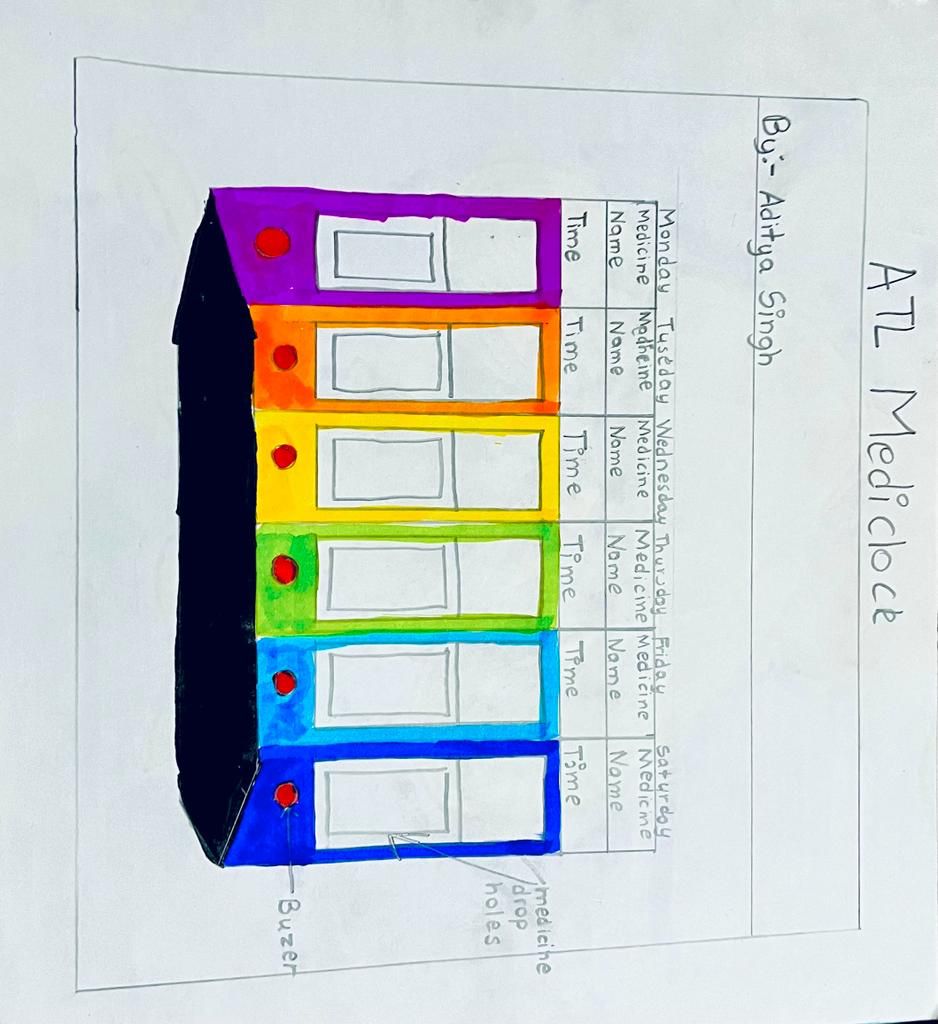 ATL Mediclock
By:- Aditya Singh
Monday Tuseday Wednesday Thursday Friday Saturday
Medicine Medheine Medicine Medicine Medicine Medicine
Name Name Name Name Name Name
Time Time Time Time Time Time
medicine
drop
holes
Buzer